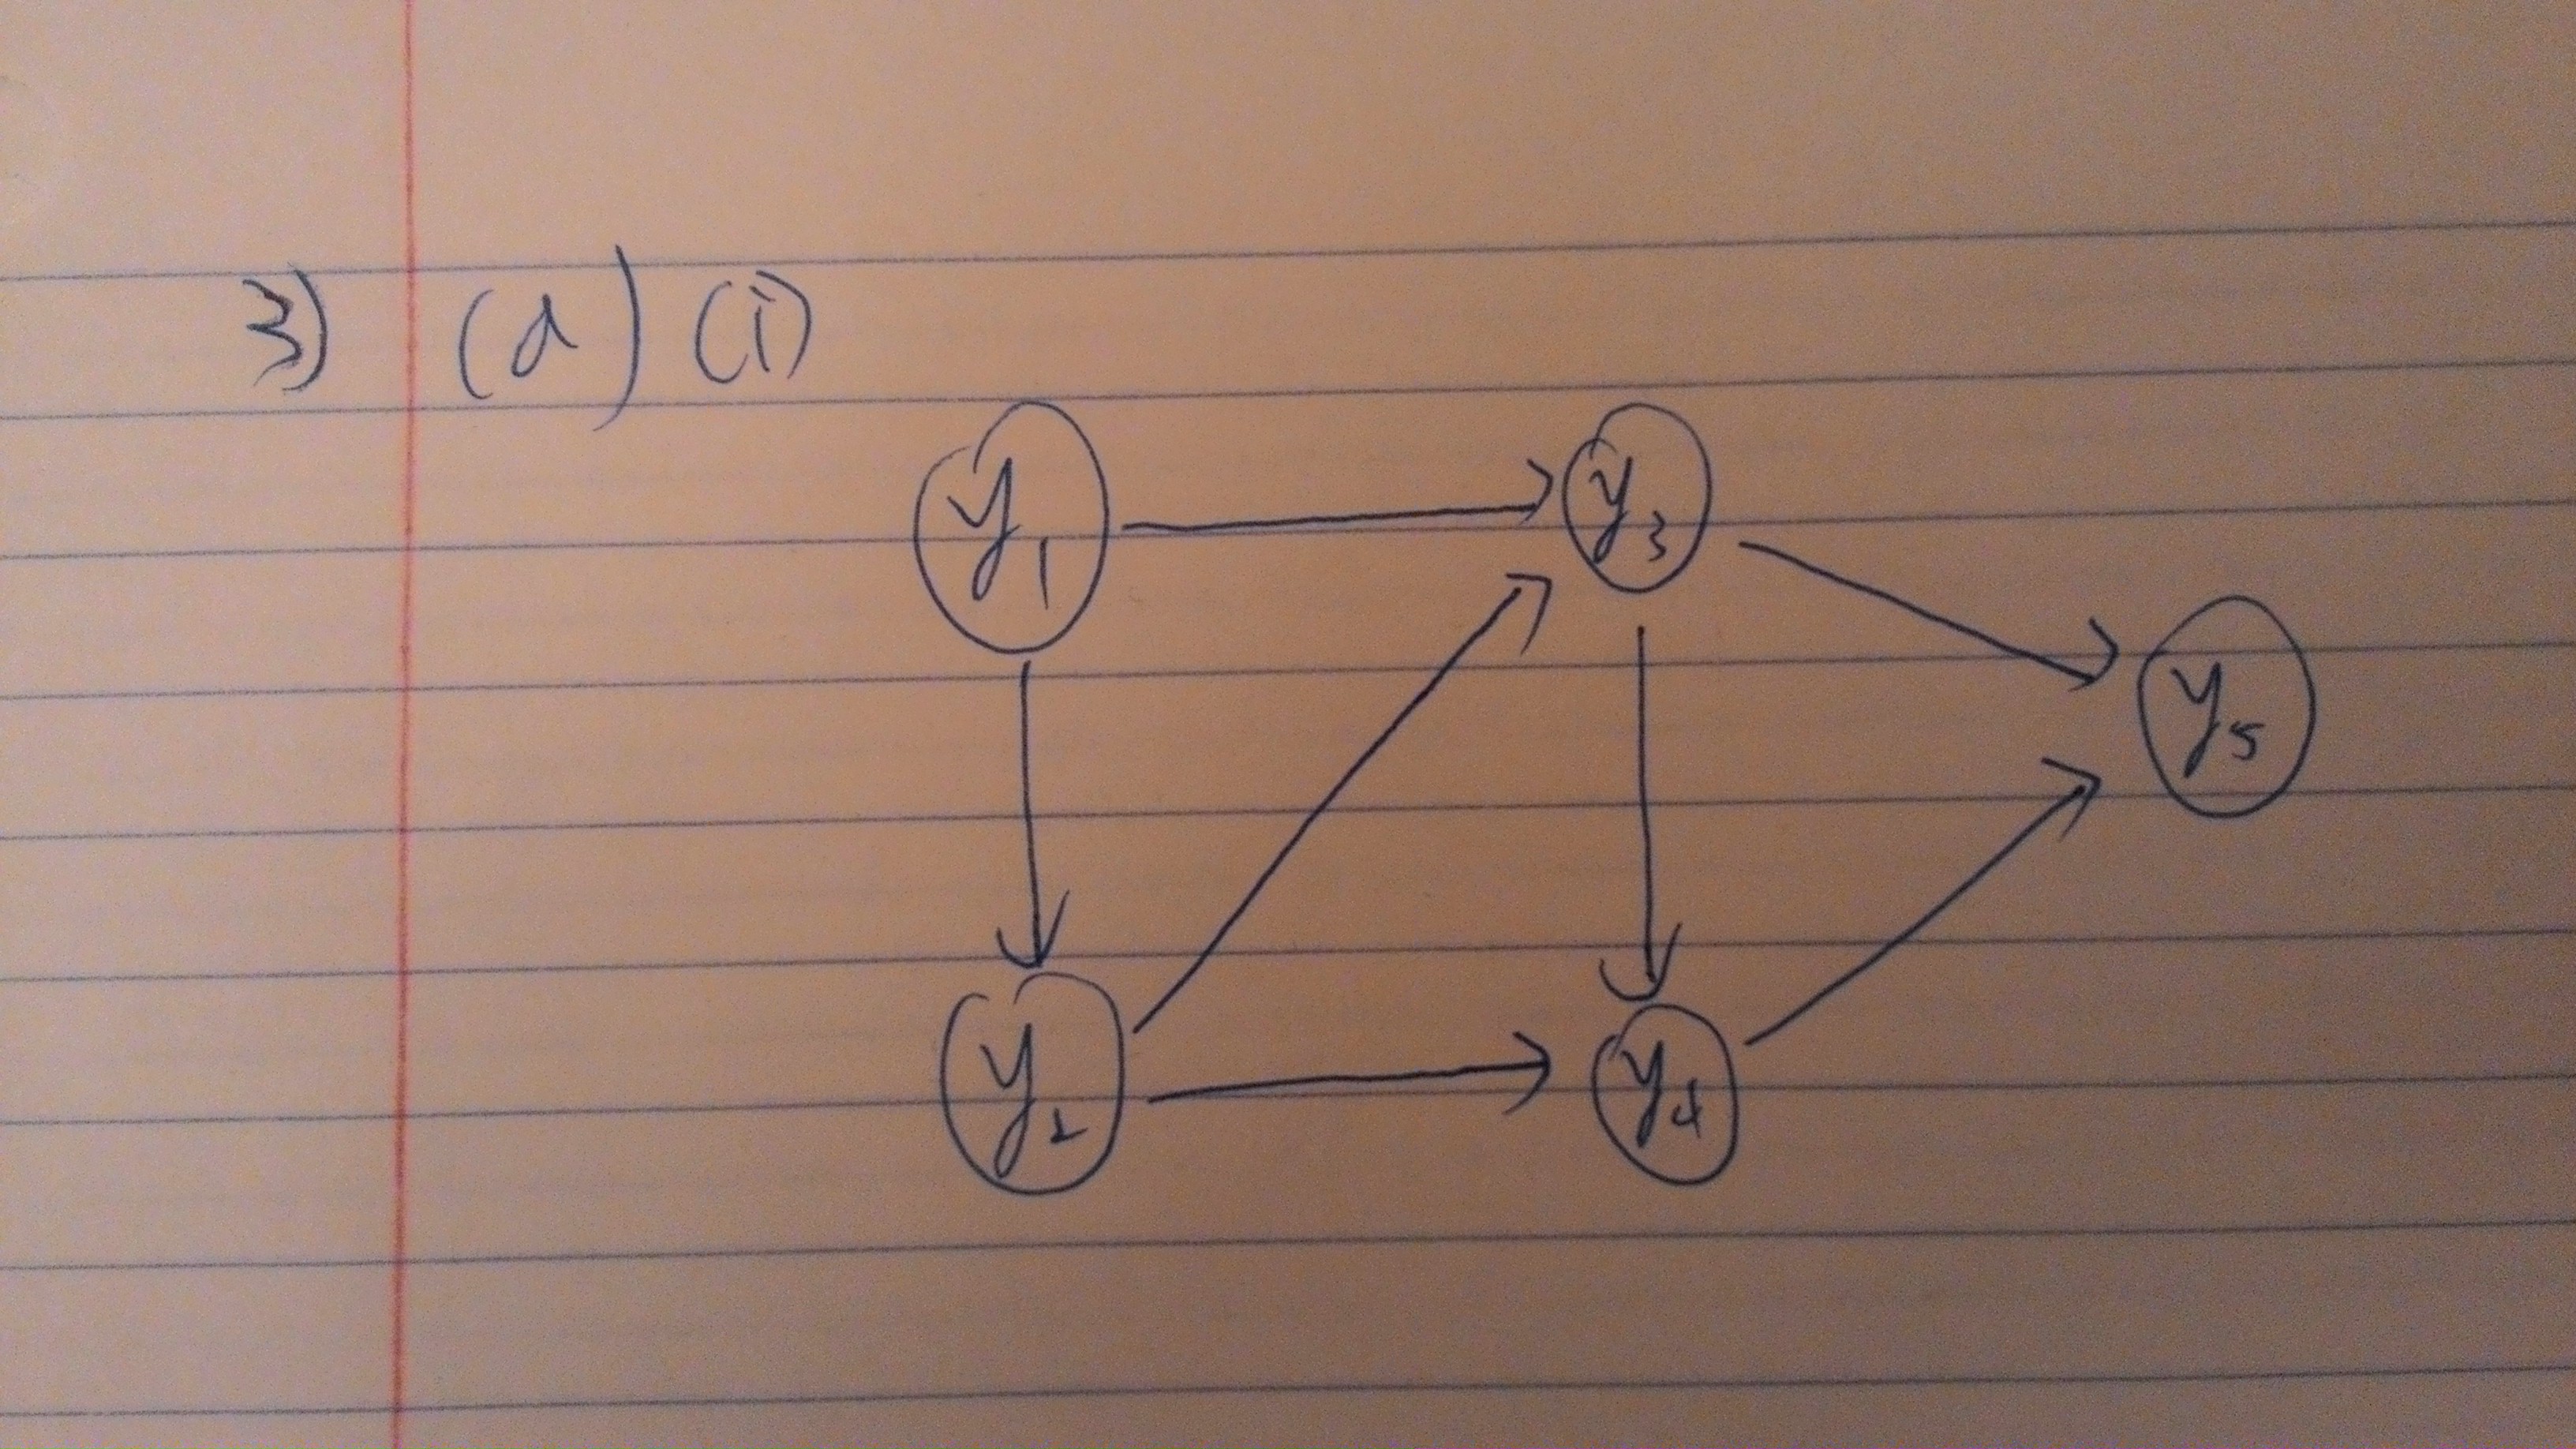 3) (a) (i)
y1 y3
y5
y2 y4